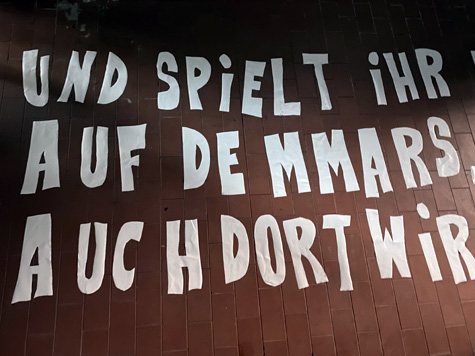 UND SPiELT iHR
AUF DEM MARS,
AUCH DORT WiR